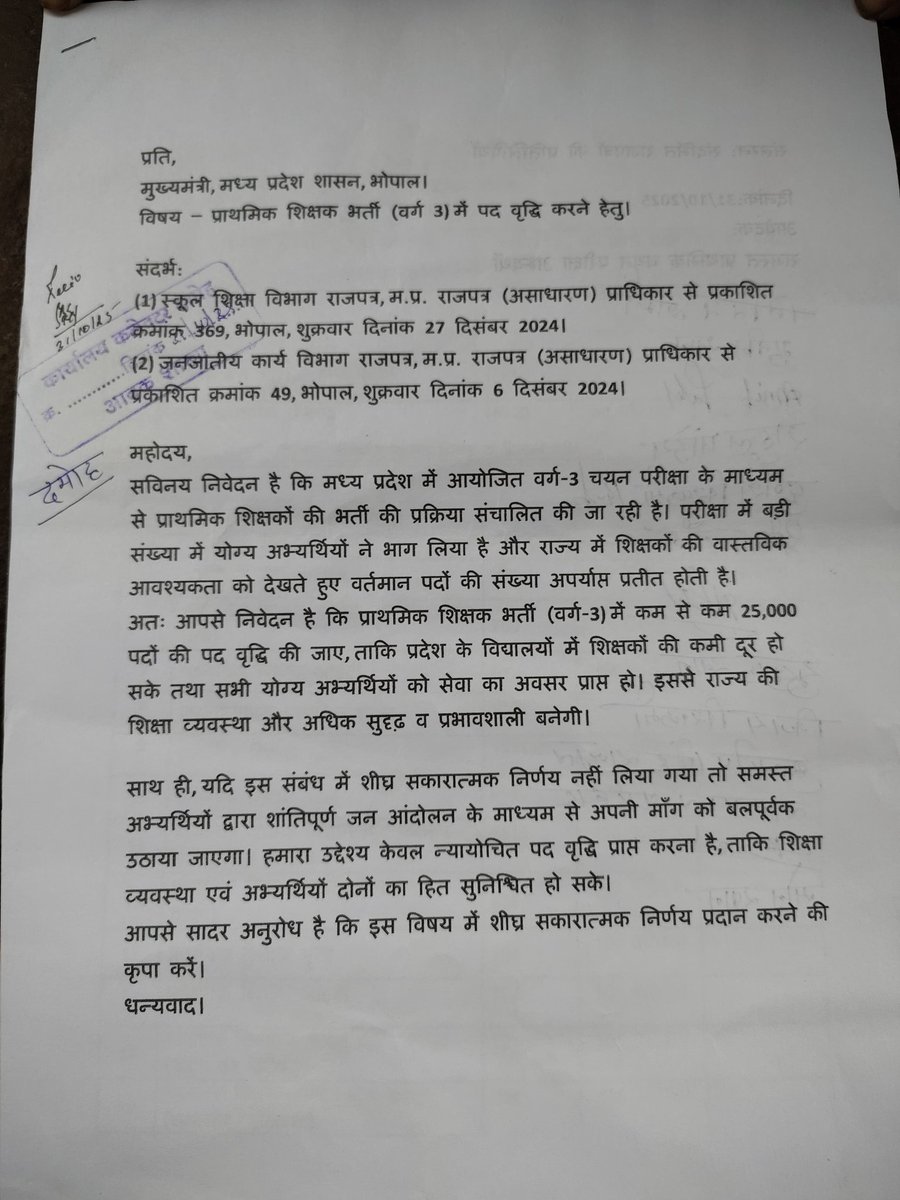 प्रति,
मुख्यमंत्री, मध्य प्रदेश शासन, भोपाल।
विषय – प्राथमिक शिक्षक भर्ती (वर्ग 3) में पद वृद्धि करने हेतु।
संदर्भ:
(1) स्कूल शिक्षा विभाग राजपत्र, म.प्र. राजपत्र (असाधारण) प्राधिकार से प्रकाशित
क्रमांक 369, भोपाल, शुक्रवार दिनांक 27 दिसंबर 2024।
(2) जनजातीय कार्य विभाग राजपत्र, म.प्र. राजपत्र (असाधारण) प्राधिकार से
प्रकाशित क्रमांक 49, भोपाल, शुक्रवार दिनांक 6 दिसंबर 2024।
31/10/25
कार्यालय कलेक्टर
क. ............ दिनांक
आवक
दमोह
महोदय,
सविनय निवेदन है कि मध्य प्रदेश में आयोजित वर्ग-3 चयन परीक्षा के माध्यम
से प्राथमिक शिक्षकों की भर्ती की प्रक्रिया संचालित की जा रही है। परीक्षा में बड़ी
संख्या में योग्य अभ्यर्थियों ने भाग लिया है और राज्य में शिक्षकों की वास्तविक
आवश्यकता को देखते हुए वर्तमान पदों की संख्या अपर्याप्त प्रतीत होती है।
अतः आपसे निवेदन है कि प्राथमिक शिक्षक भर्ती (वर्ग-3) में कम से कम 25,000
पदों की पद वृद्धि की जाए, ताकि प्रदेश के विद्यालयों में शिक्षकों की कमी दूर हो
सके तथा सभी योग्य अभ्यर्थियों को सेवा का अवसर प्राप्त हो। इससे राज्य की
शिक्षा व्यवस्था और अधिक सुदृढ़ व प्रभावशाली बनेगी।
साथ ही, यदि इस संबंध में शीघ्र सकारात्मक निर्णय नहीं लिया गया तो समस्त
अभ्यर्थियों द्वारा शांतिपूर्ण जन आंदोलन के माध्यम से अपनी माँग को बलपूर्वक
उठाया जाएगा। हमारा उद्देश्य केवल न्यायोचित पद वृद्धि प्राप्त करना है, ताकि शिक्षा
व्यवस्था एवं अभ्यर्थियों दोनों का हित सुनिश्चित हो सके।
आपसे सादर अनुरोध है कि इस विषय में शीघ्र सकारात्मक निर्णय प्रदान करने की
कृपा करें।
धन्यवाद।